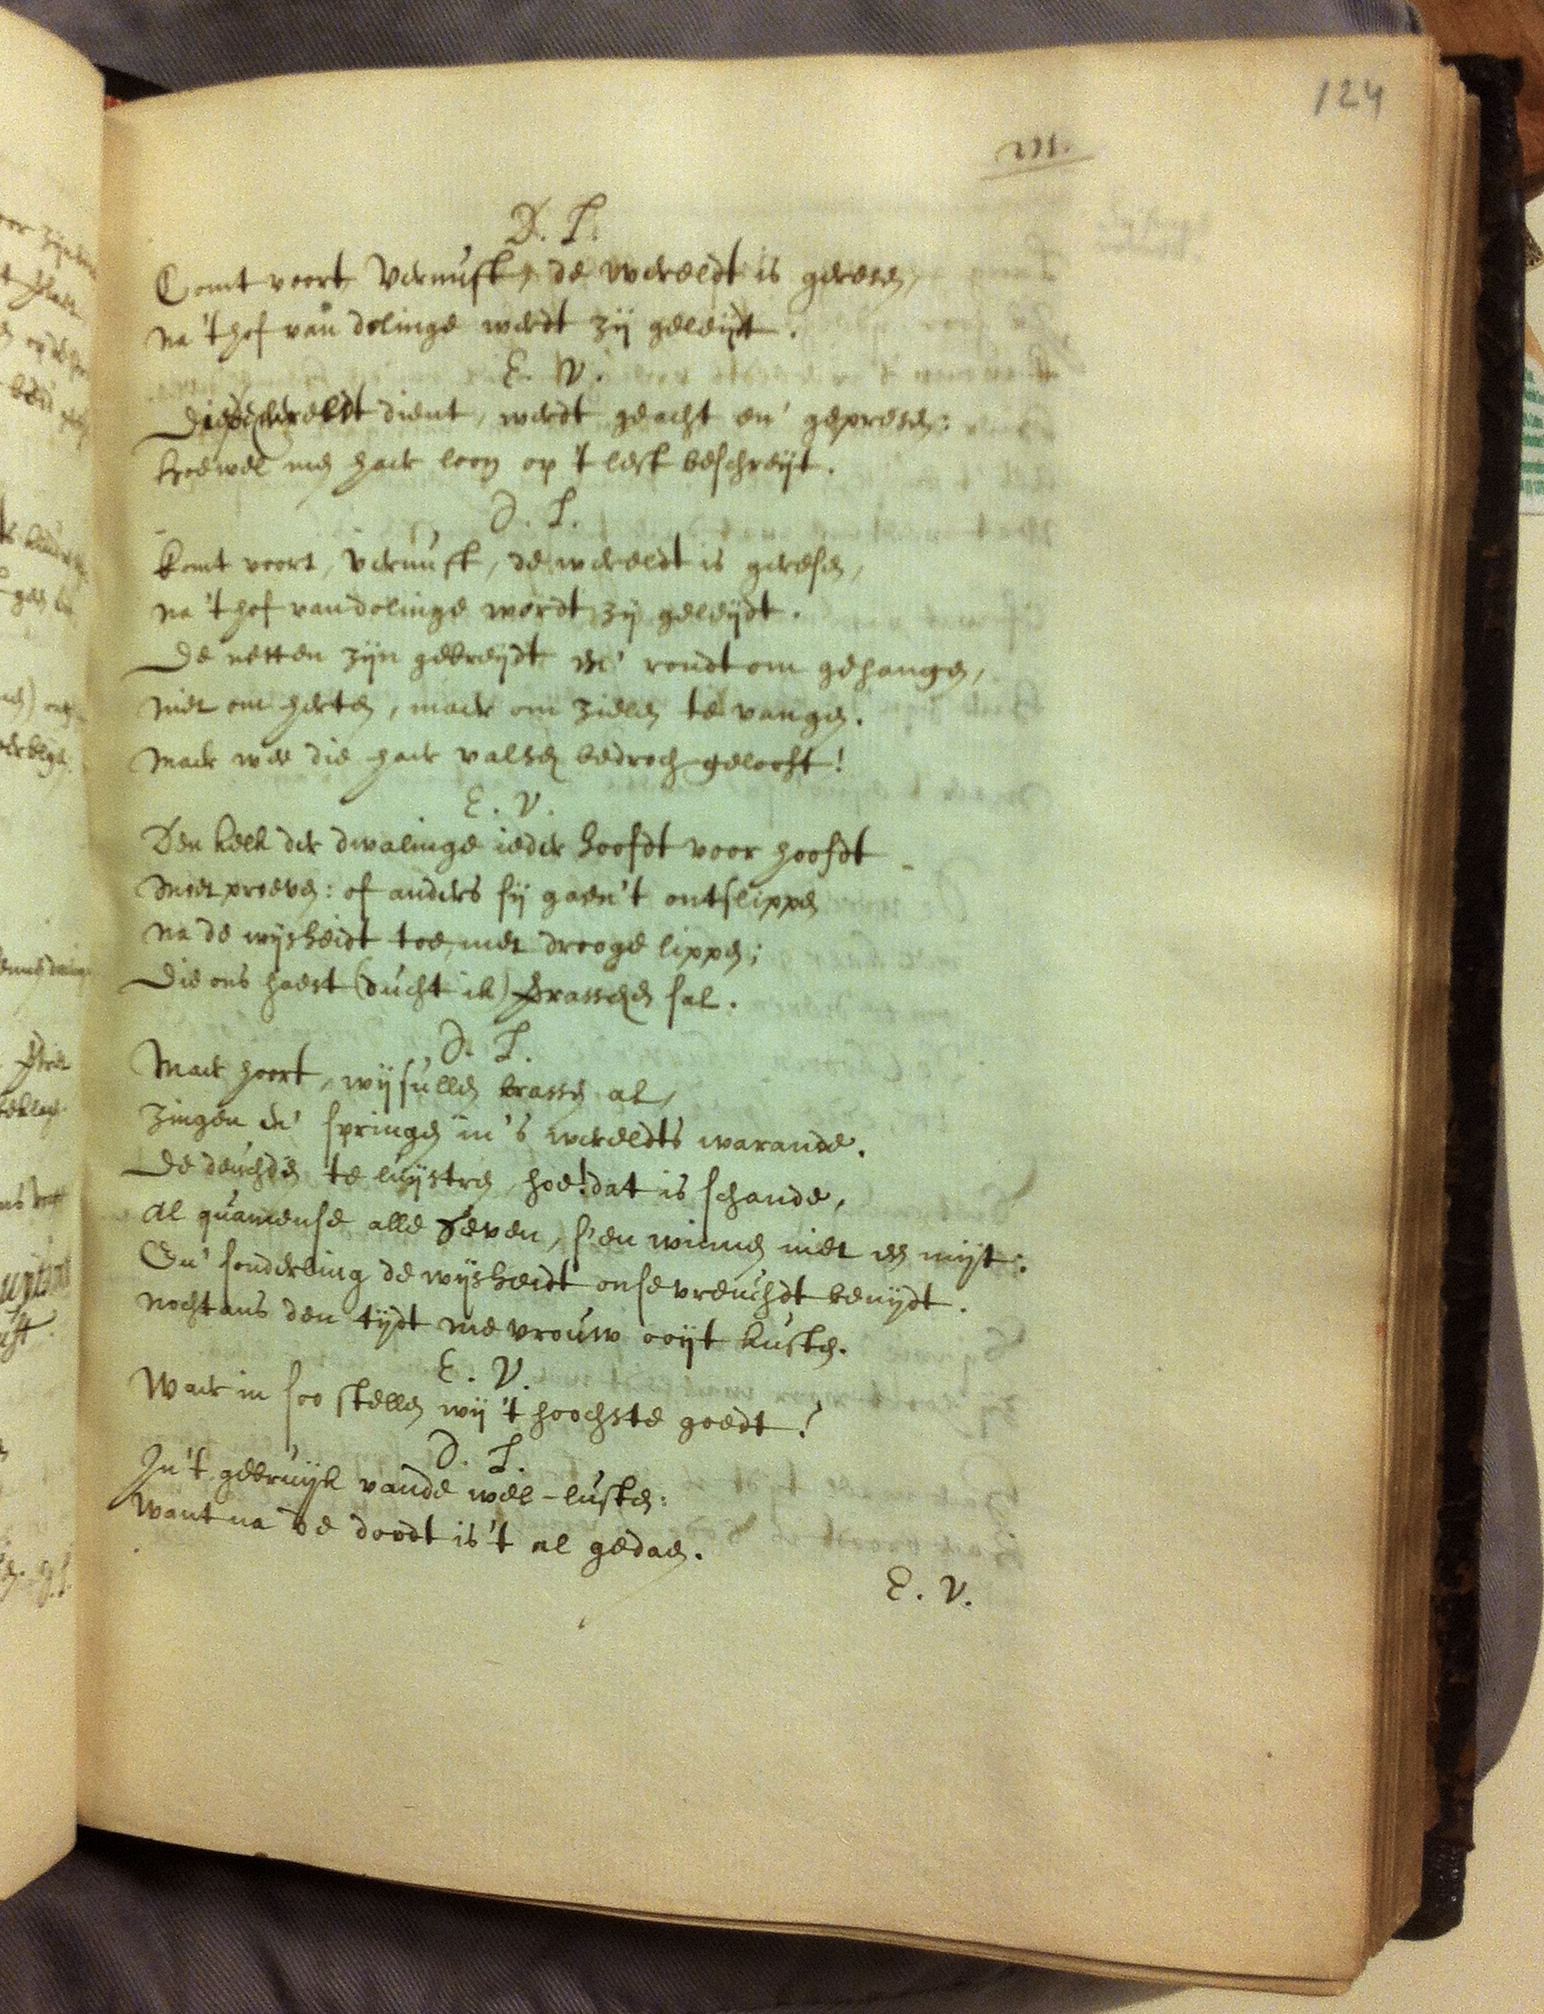 124
III.
D. L.
Comt voort Vernuft, de wereldt is geresen,
na 't hof van dolinge werdt zÿ geleÿdt.
E. V.
Die de wereldt dient, werdt geacht en' gepresen:
hoewel men haer loon op 't lest beschreÿt.
D. L.
Komt voort, vernuft, de wereldt is geresen,
na 't hof van dolinge wordt zÿ geleÿdt.
De netten zÿn gebreÿdt en' rondtom gehangen,
niet om herten, maer om zielen te vangen.
Maer wee die haer valsch bedroch gelooft!
E. V.
Den kelk der dwalinge ieder hoofdt voor hoofdt
moet proeven: of anders sÿ gaen 't ontslippen
na de wÿsheidt toe, met drooge lippen;
Die ons haest (ducht ik) sal.
D. L.
Maer hoort, wÿ sullen brassen al,
Zingen en' springen in 's wereldts warande.
De deuchden te luÿstren, hoe! dat is schande,
Al quamense alle seven, s'en winnen niet een mÿt:
En' sonderling de wÿsheidt onse vreuchdt benÿdt.
nochtans den tÿdt me vrouw ooÿt kusten.
E. V.
Waer in soo stellen wÿ 't hoochste goedt?
D. L.
In 't gebruÿk vande wel-lusten:
want na de doodt is 't al gedaen.
E. V.